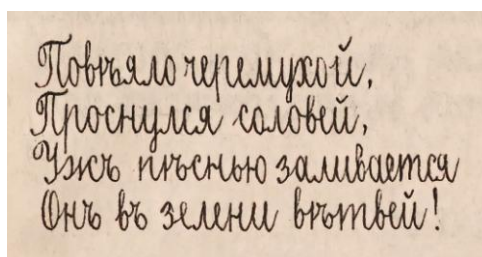 Повѣяло черемухой,
Проснулся соловей,
Ужъ пѣснью заливается
Онъ въ зелени вѣтвей!